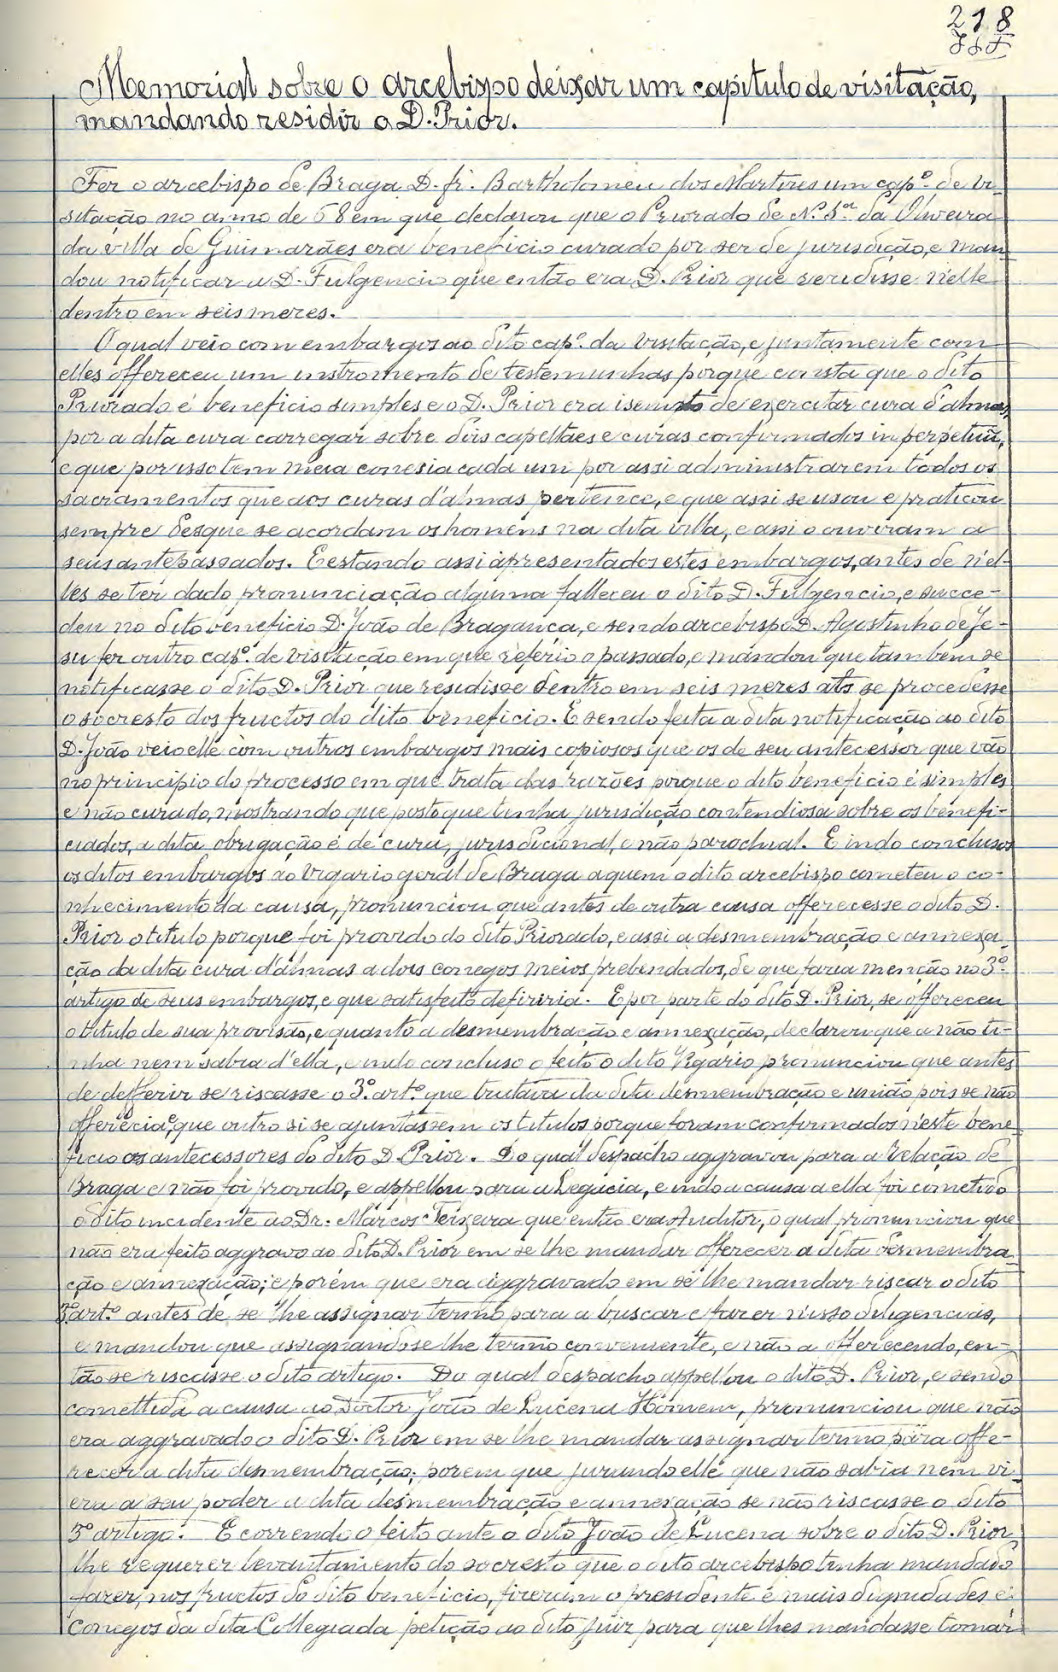 218
Memorial sobre o arcebispo deixar um capitulo de visitação,
mandando residir o D. Prior.
Fez o arcebispo de Braga D. fr. Bartholomeu dos Martires um cap.º de vi-
sitação no anno de 68 em que declarou que o Priorado de N. S.ra da Oliveira
da villa de Guimarães era beneficio curado por ser de jurisdição, e man-
dou notificar a D. Fulgencio que então era D. Prior que residisse n'elle
dentro em seis mezes.
O qual veio com embargos ao dito cap.º da visitação, e juntamente com
elles offereceu um instromento de testemunhas porque consta que o dito
Priorado é beneficio simples e o D. Prior era isempto de exercitar cura d'almas,
por a dita cura carregar sobre dois capellães e curas confirmados in perpetuũ,
e que por isso tem meia conesia cada um por assi administrarem todos os
sacramentos que aos curas d'almas pertence, e que assi se usou e praticou
sempre desque se acordam os homens na dita villa, e assi o ouviram a
seus antepassados. E estando assi apresentados estes embargos, antes de n'el-
les se ter dado pronunciação alguma falleceu o dito D. Fulgencio, e succe-
deu no dito beneficio D. João de Bragança, e sendo arcebispo D. Agostinho de Je-
su fez outro cap.º de visitação em que referio o passado, e mandou que tambem se
notificasse o dito D. Prior que residisse dentro em seis mezes als se procedesse
o socresto dos fructos do dito beneficio. E sendo feita a dita notificação ao dito
D. João veio elle com outros embargos mais copiosos que os de seu antecessor que vão
no principio do processo em que trata das razões porque o dito beneficio é simples
e não curado, mostrando que posto que tenha jurisdição contendiosa sobre os benefi-
ciados, a dita obrigação é de cura jurisdicional, e não parochial. E indo conclusos
os ditos embargos ao Vigario geral de Braga a quem o dito arcebispo cometeu o co-
nhecimento da causa, pronunciou que antes de outra cousa offerecesse o dito D.
Prior o titulo porque foi provido do dito Priorado, e assi a desmembração e annexa-
ção da dita cura d'almas a dois conegos meios prebendados, de que fazia menção no 3.º
artigo de seus embargos, e que satisfeito defiriria. E por parte do dito D. Prior, se offereceu
o titulo de sua provisão, e quanto a desmembração e annexação, declarou que a não ti-
nha nem sabia d'ella, e indo concluso o feito o dito Vigario pronunciou que antes
de defferir se riscasse o 3.º art.º que tratava da dita desmembração e união pois se não
offerecia e que outro si se ajuntassem os titulos porque foram confirmados n'este bene-
ficio os antecessores do dito D. Prior. Do qual despacho aggravou para a Relação de
Braga e não foi provido, e appellou para a Legacia, e indo a causa a ella foi cometido
o dito incidente ao Dr. Marcos Teixeira que então era Auditor, o qual pronunciou que
não era feito aggravo ao dito D. Prior em se lhe mandar offerecer a dita desmembra-
ção e annexação; e porém que era aggravado em se lhe mandar riscar o dito
3.º art.º antes de se lhe assignar termo para a buscar e fazer n'isso diligencias,
e mandou que assignandose lhe termo conveniente, e não a offerecendo, en-
tão se riscasse o dito artigo. Do qual despacho appellou o dito D. Prior, e sendo
comettida a causa ao Doutor João de Lucena Homem, pronunciou que não
era aggravado o dito D. Prior em se lhe mandar assignar termo para offe-
recer a dita desmembração; porem que jurando elle que não sabia nem vi-
era a seu poder a dita desmembração e annexação se não riscasse o dito
3.º artigo. E correndo o feito ante o dito João de Lucena sobre o dito D. Prior
lhe requerer levantamento do socresto que o dito arcebispo tinha mandado
fazer, nos fructos do dito beneficio, fizeram o presidente e mais dignidades e
conegos da dita Collegiada petição ao dito juiz para que lhes mandasse tomar